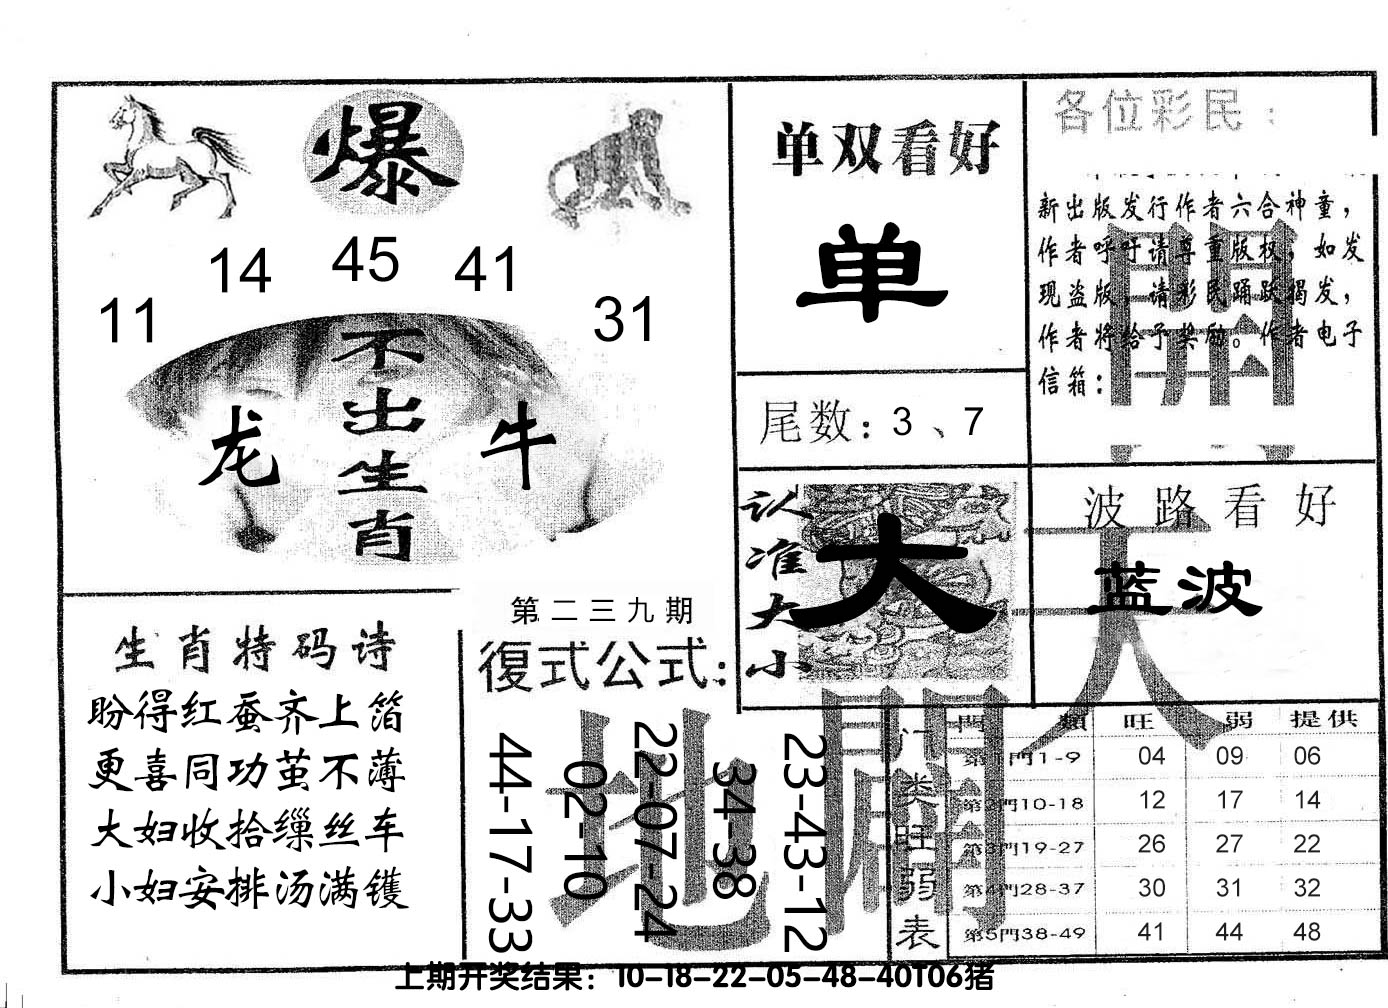 爆
14 45 41
11 31
不出生肖
龙 牛
单双看好
单
尾数：3、7
各位彩民：
新出版发行作者六合神童，
作者呼吁请尊重版权，如发
现盗版，请彩民踊跃揭发，
作者将给予奖励。作者电子
信箱：
認准大小
大
波路看好
蓝波
天
開
地
開
生肖特码诗
盼得红蚕齐上箔
更喜同功茧不薄
大妇收拾缫丝车
小妇安排汤满镬
第二三九期
復式公式：
44-17-33
02-10
22-07-24
34-38
23-43-12
门类旺弱表
門類 旺 弱 提供
第1門1-9 04 09 06
第2門10-18 12 17 14
第3門19-27 26 27 22
第4門28-37 30 31 32
第5門38-49 41 44 48
上期开奖结果：10-18-22-05-48-40T06猪